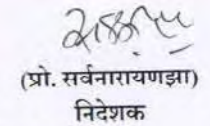 (प्रो. सर्वनारायणझा)
निदेशक